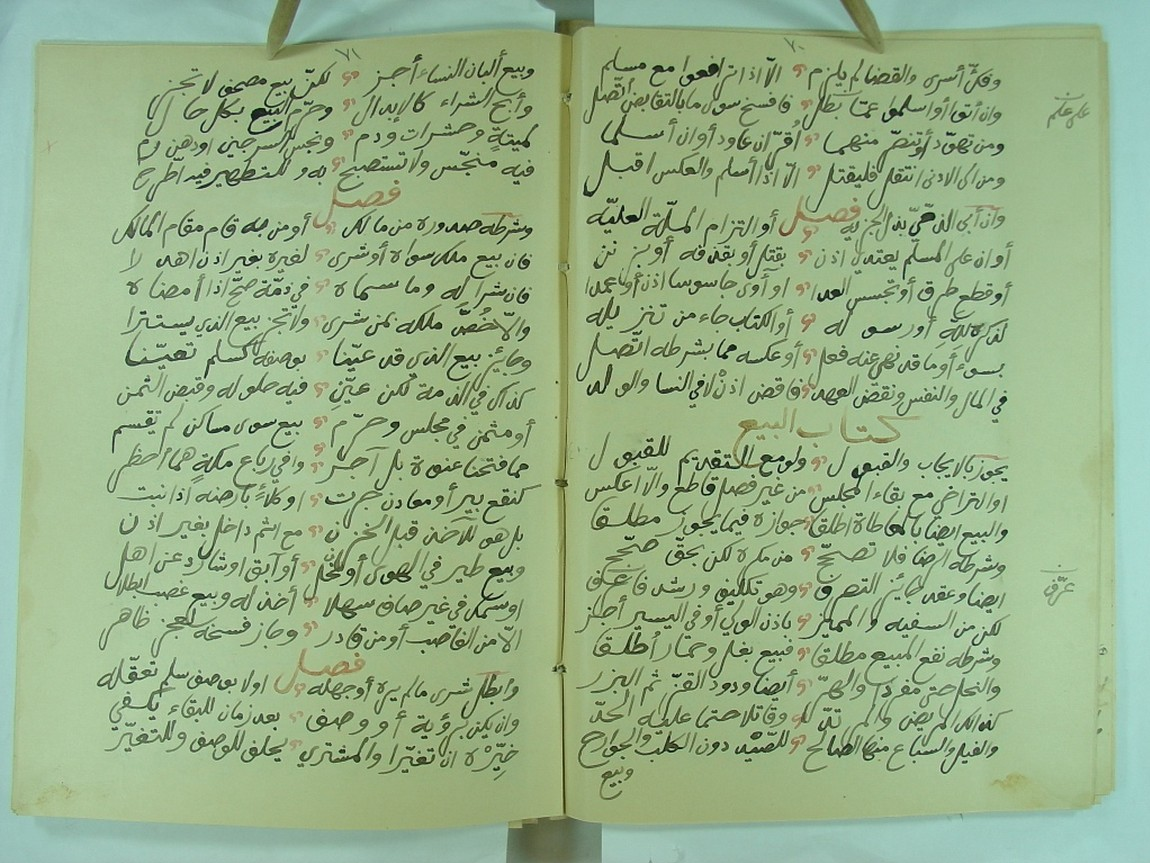 ٧٠
وفك أسرى والقضا لم يلزم إلا اذا ترافعوا مع مسلم
وان أتوا أو اسلموا عمّا بطل فافسخ سوى ما بالتقابض اتصل
ومن تهوّد أو تنصّر منهما أقرّ ان عاود أو ان أسلما
ومن الى الادنى انتقل فليقتل الّا اذا أسلم والعكس اقبل
فصل
وان أبى الذمّي بذل الجزيه أو التزام الملّة العليّه
أو ان على المسلم يعتدي اذن بقتل أو بقذفه أو بزنن
أو قطع طرق أو تجسس العدا او آوى جاسوسا اذن أو عمدا
لذكره الله أو رسوله أو الكتاب جاء من تنزيله
بسوء أو ما قد نهي عنه فعل أو عكسه مما بشرطه اتّصل
في المال والنفس ونقض العهد فاقض اذن لا في النسا والولد
كتاب البيع
يجوز بالايجاب والقبول ولو مع التقديم للقبول
او التراخي مع بقاء المجلس من غير فصل قاطع والّا اعكس
والبيع ايضا بالمعاطاة اطلقا جوازه فيما يجوز مطلقا
وشرطه الرضا فلا تصحّح من مكره لكن بحقّ صحّح
ايضا وعقد جائز التصرف وهو تكليف ورشد فاعرف
لكن من السفيه والمميز باذن الولي أو في اليسير أجز
وشرطه نفع المبيع مطلقا فبيع بغل وحمار أطلقا
والنحل حتى مفردا والهرّ أيضا ودود القزّ ثم البزر
والفيل والسباع منها الصالح للصّيد دون الكلب والجوارح
وبيع
٧١
وبيع ألبان النساء أجز لكنّ بيع مصحف لا تجز
وأبح الشراء كالابدال وحرّم البيع بكل حال
لميتةٍ وحشرات ودم ونجس السرجين او دهن رم
فيه منجّس ولا تستصبح به وللتطهير فيه اطّرح
فصل
وشرطه صدوره من مالك أو من به قام مقام المالك
فان يبع ملك سواه أو شرى لغيره بغير اذن اهدرا
فان شرا له وما سماه في ذمّة صحّ اذا أمضاه
والّا خُصّ ملكه بمن شرى ولا تجز بيع الذي يستترا
وجايز بيع الذي قد عيّنا بوصفه كسلم تعيّنا
كذاك في الذمة لكن عيّن فيه حلوله وقبض الثمن
أو مثمن في مجلس وحرّم بيع سوى مساكن لم تقسم
مما فتحنا عنوة بل آجز وفي رباع مكةٍ هما أحظر
كنقع بير أو معادن جرت او كلأ بارضه اذا نبت
بل هو للآخذ قبل الحوز ن مع اثم داخل بغير اذن
وبيع طير في الهوى أو النحل أو آبق او شارد عن اهل
او سمك في غير صاف سهلا أخذ له وبيع غصب ابطلا
الّا من الغاصب أو من قادر وجاز فسخه لعجز ظاهر
فصل
وأبطل شرى مالم يره أو جهله اولا بوصف سلم تعقّله
وان يكن برؤية أو وصف بعد زمان للبقاء يكفي
خيّره ان تغيّرا والمشتري يحلف للوصف وللتغيّر